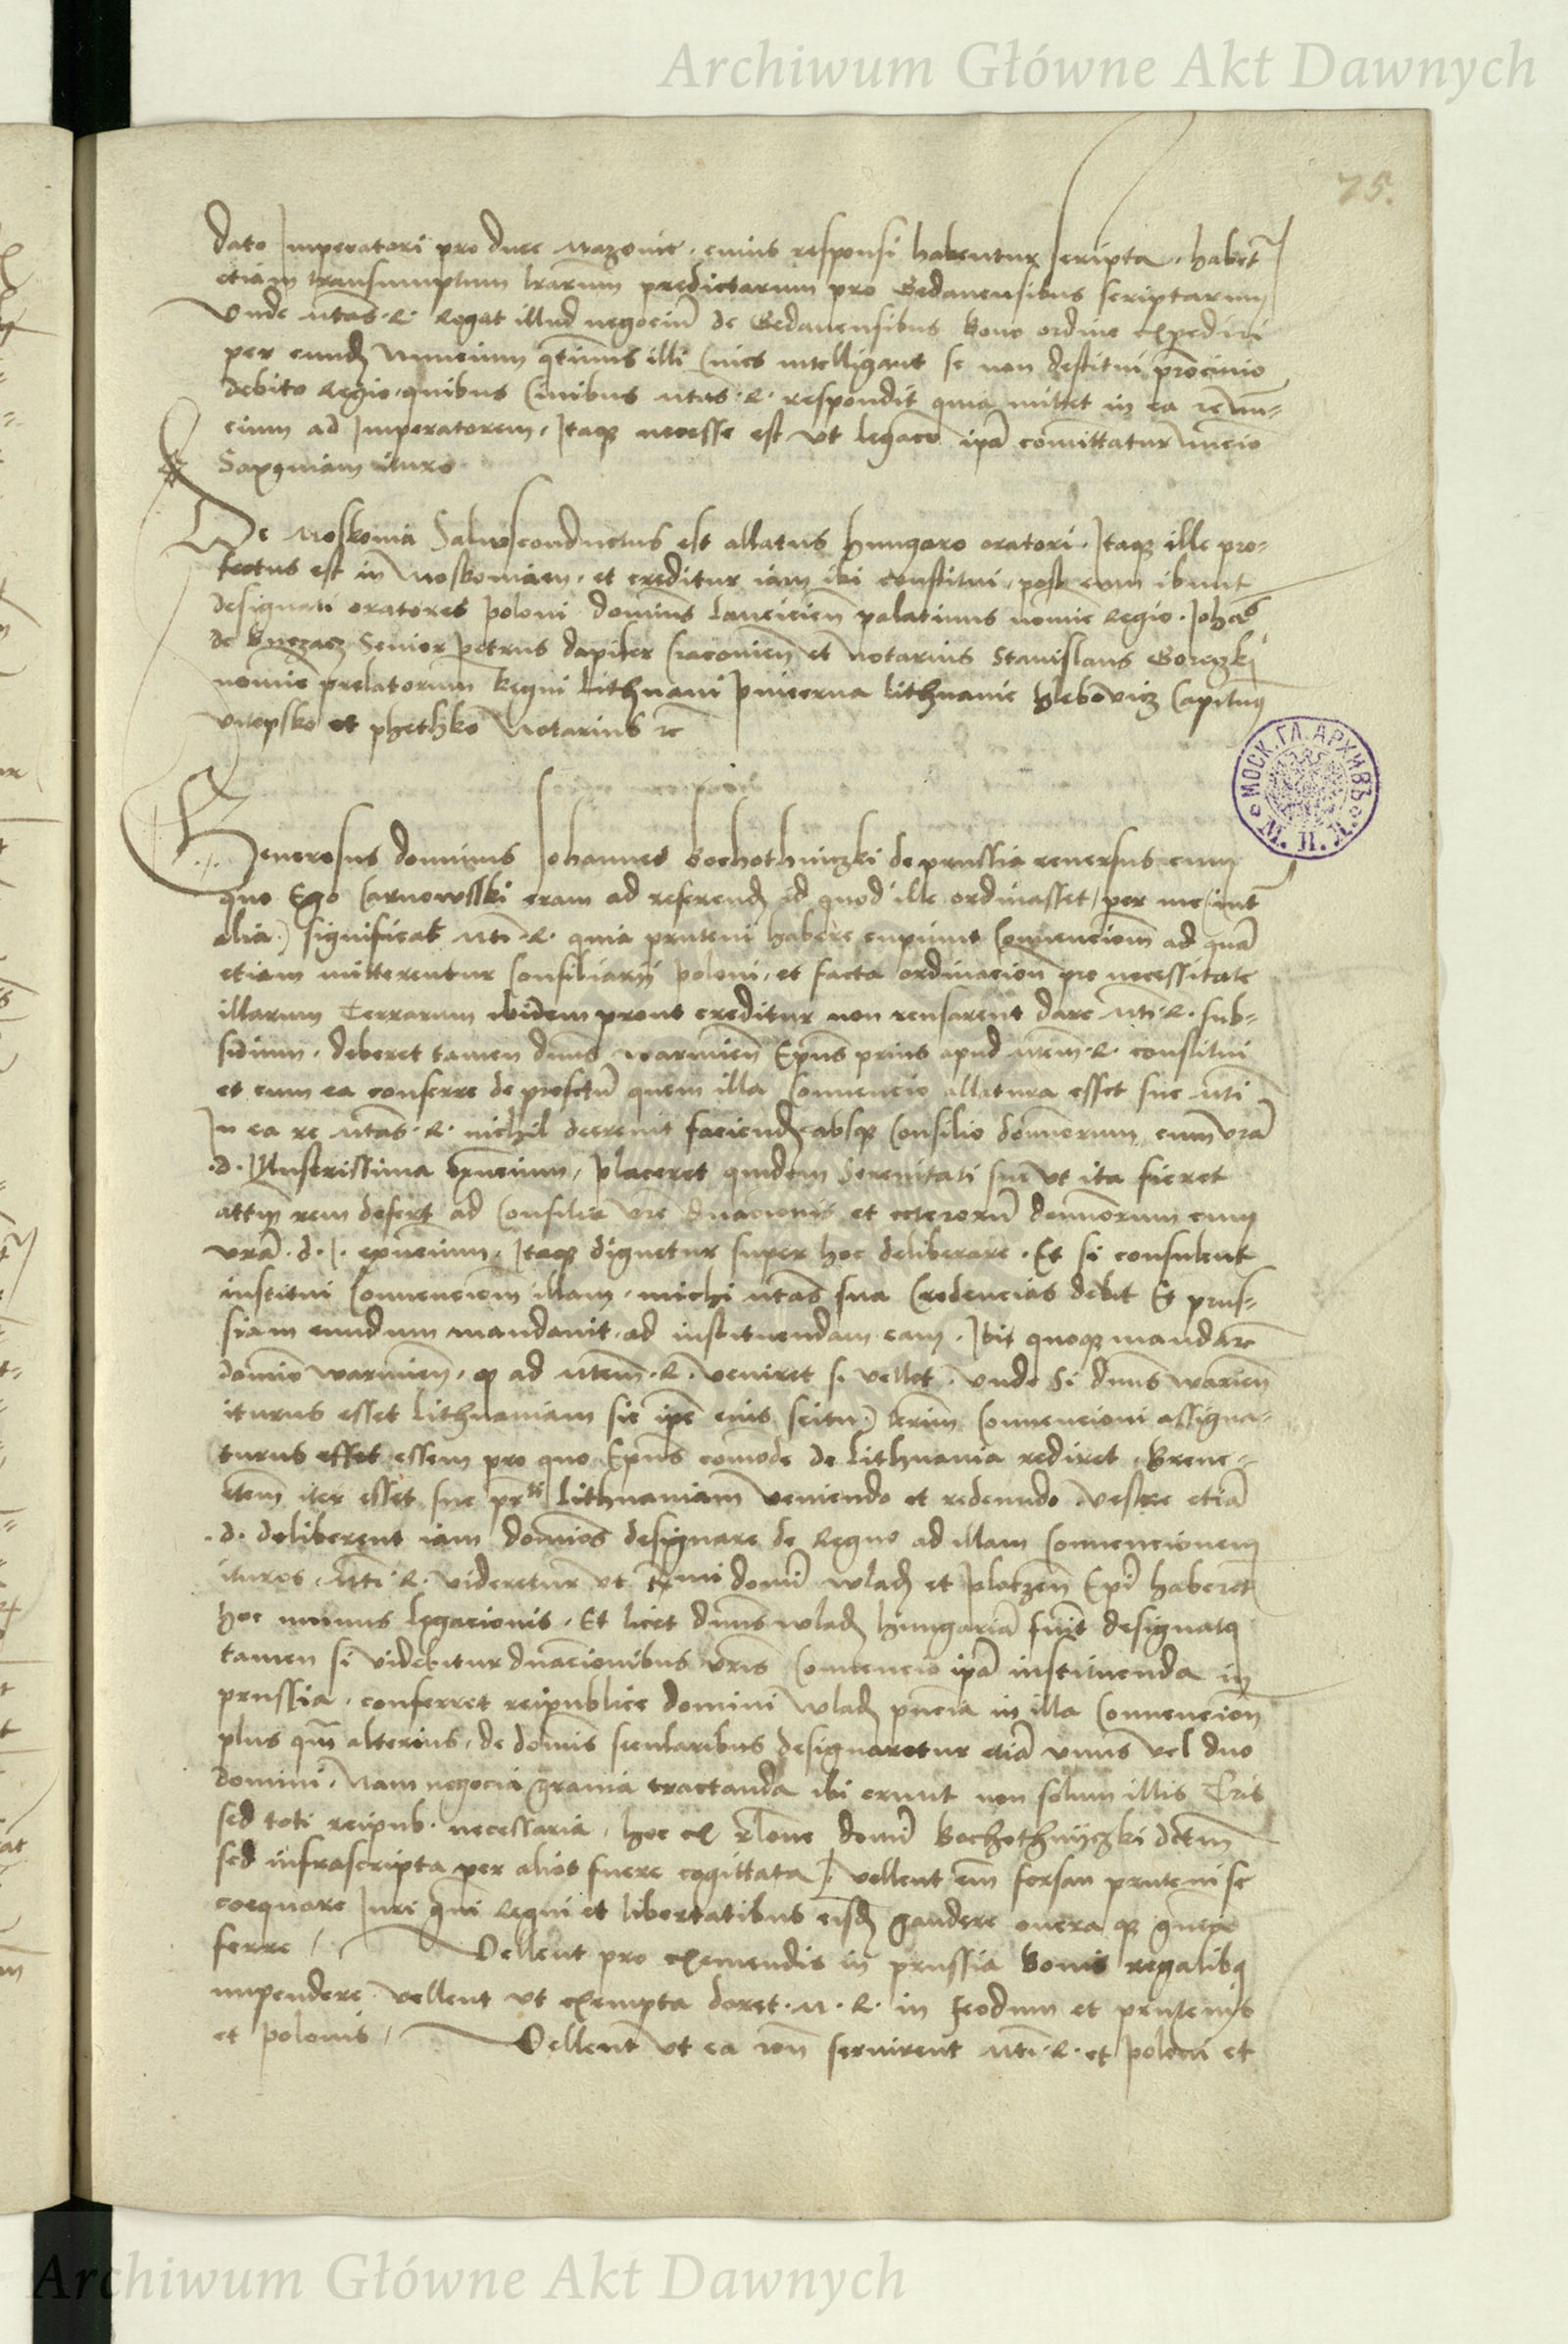 Archiwum Główne Akt Dawnych
75.
dato Imperatori pro duce Mazovie, cuius responsi habentur scripta, habet
etiam transsumptum lrarum predictarum pro Gedanensibus scriptarum
Unde Mtas R. legat illud negociũ de Gedanensibus bono ordine expediri
per eund Nuncium qtinus illi Cives intelligant se non destitui
debito Regio, quibus Civibus Mtas R. respondit quia mittet in ea re nun-
cium ad Imperatorem, Itaq necesse est ut legacio ipã comittatur nuncio
Saxoniam ituro
De Moskovia Salvusconductus est allatus hungaro oratori. Itaq ille pro-
fectus est in Moskoviam, et creditur iam ibi constitui, post eum ibunt
designati oratores poloni dominus Lanciciẽn palatinus nomine Regio. Johẽs
de Senior petrus dapifer Cracovieñ et Notarius Stanislaus Goreczki
nomine prelatorum Regni Lithuani pincerna lithuanie hlebovicz Capitnꝰ
vitepsko et phethko Notarius rc̃
Generosus dominus Johannes Bochothniczki de prussia reversus cum
quo Ego Carnowsski eram ad referend id quod ille ordinasset, per me (int
alia) significat Mti R. quia pruteni habere cupiunt Convencionẽ ad quã
etiam mitterentur Consiliarii poloni, et facta ordinacion pro necessitate
illarum Terrarum ibidem prout creditur non recusarent dare Mti R. sub-
sidium, deberet tamen dnus warmieñ Epus prius apud Mtem R. constitui
et cum ea conferre de profectu quem illa Convencio allatura esset sue Mti
In ea re Mtas R. nichil decrevit faciend absq Consilio dominorum cum vrã
d. Illustrissima Placeret quidem Serenitati sue ut ita fieret
attñ rem defert ad Consilia vrẽ dnacionis et ceterorũ dominorum cum
vrã d. I. Itaq dignetur super hoc deliberare. Et si consulent
institui Convencionem illam, michi Mtas sua Credencias debit Et prus-
siam eundum mandavit ad instituendam eam, ibit quoq mandare
domino warmieñ, q ad Mtem R. veniret si vellet, unde Si dnus warieñ
iturus esset Lithuaniam sic ipẽ eius scitu) Convencioni assigna-
turus esset essem pro quo Epus comode de Lithuania rediret, Breve-
iter esset sue Lithuaniam veniendo et redeundo vestre etiã
d. deliberent iam dominos designare de Regno ad illam Convencionem
ituros, Mti R. videretur ut domĩ wlad et ploczeñ Epi haberet
hoc munus legacionis, Et licet dnus wlad hungariã fuit designatꝰ
tamen si videbitur dnacionibus vris Convencio ipã instituenda in
prussia, conferret reipublice domini wlad pñcia in illa Convencion
plus qm̃ alterius, de domnis secularibus designaretur etiã unus vel duo
domini, Nam negocia gravia tractanda ibi erunt non solum illis Tris
sed toti reipub. necessaria, hoc ex domĩ Bochothniczki dctm
sed infrascripta per alios fuere cogittata. vellent em forsan pruteni se
coequare Iuri Regni et libertatibus eisd gaudere onera q
ferre / Vellent pro eximendis in prussia bonis regalibꝰ
impendere vellent ut exempta daret M. R. in feodum et prutenis
et polonis / Vellent ut ea servirent Mti R. et poloni et
МОСК. ГЛ. АРХИВЪ М. И. Д.
Archiwum Główne Akt Dawnych